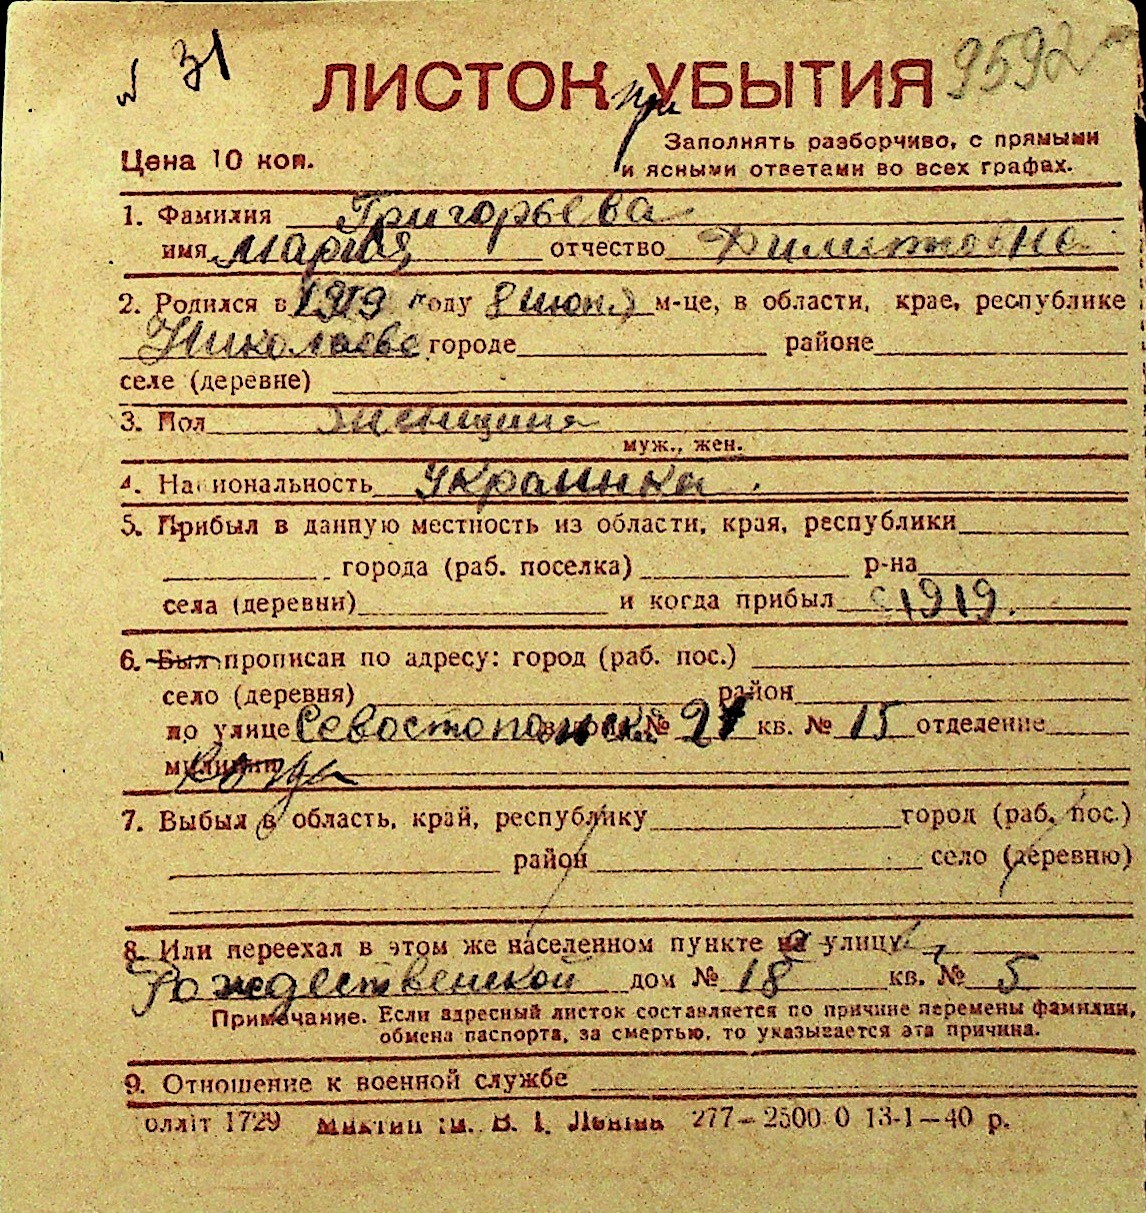 № 31
9592
ЛИСТОК при УБЫТИЯ
Цена 10 коп.
Заполнять разборчиво, с прямыми
и ясными ответами во всех графах.
1. Фамилия Григорьева
имя Мария отчество Филитовна
2. Родился в 1919 году 8 июня м-це, в области, крае, республике
Николаеве городе районе
селе (деревне)
3. Пол женщина
муж., жен.
4. Национальность украинка.
5. Прибыл в данную местность из области, края, республики
города (раб. поселка) р-на
села (деревни) и когда прибыл с 1919.
6. Был прописан по адресу: город (раб. пос.)
село (деревня) район
по улице Севостопольская № 27 кв. № 15 отделение
милиции
7. Выбыл в область, край, республику город (раб. пос.)
район село (деревню)
8. Или переехал в этом же населенном пункте на улицу
Рождественской дом № 18 кв. № 5
Примечание. Если адресный листок составляется по причине перемены фамилии,
обмена паспорта, за смертью, то указывается эта причина.
9. Отношение к военной службе
оллiт 1729 В. I. Ленiна 277–2500 0 13-1–40 р.